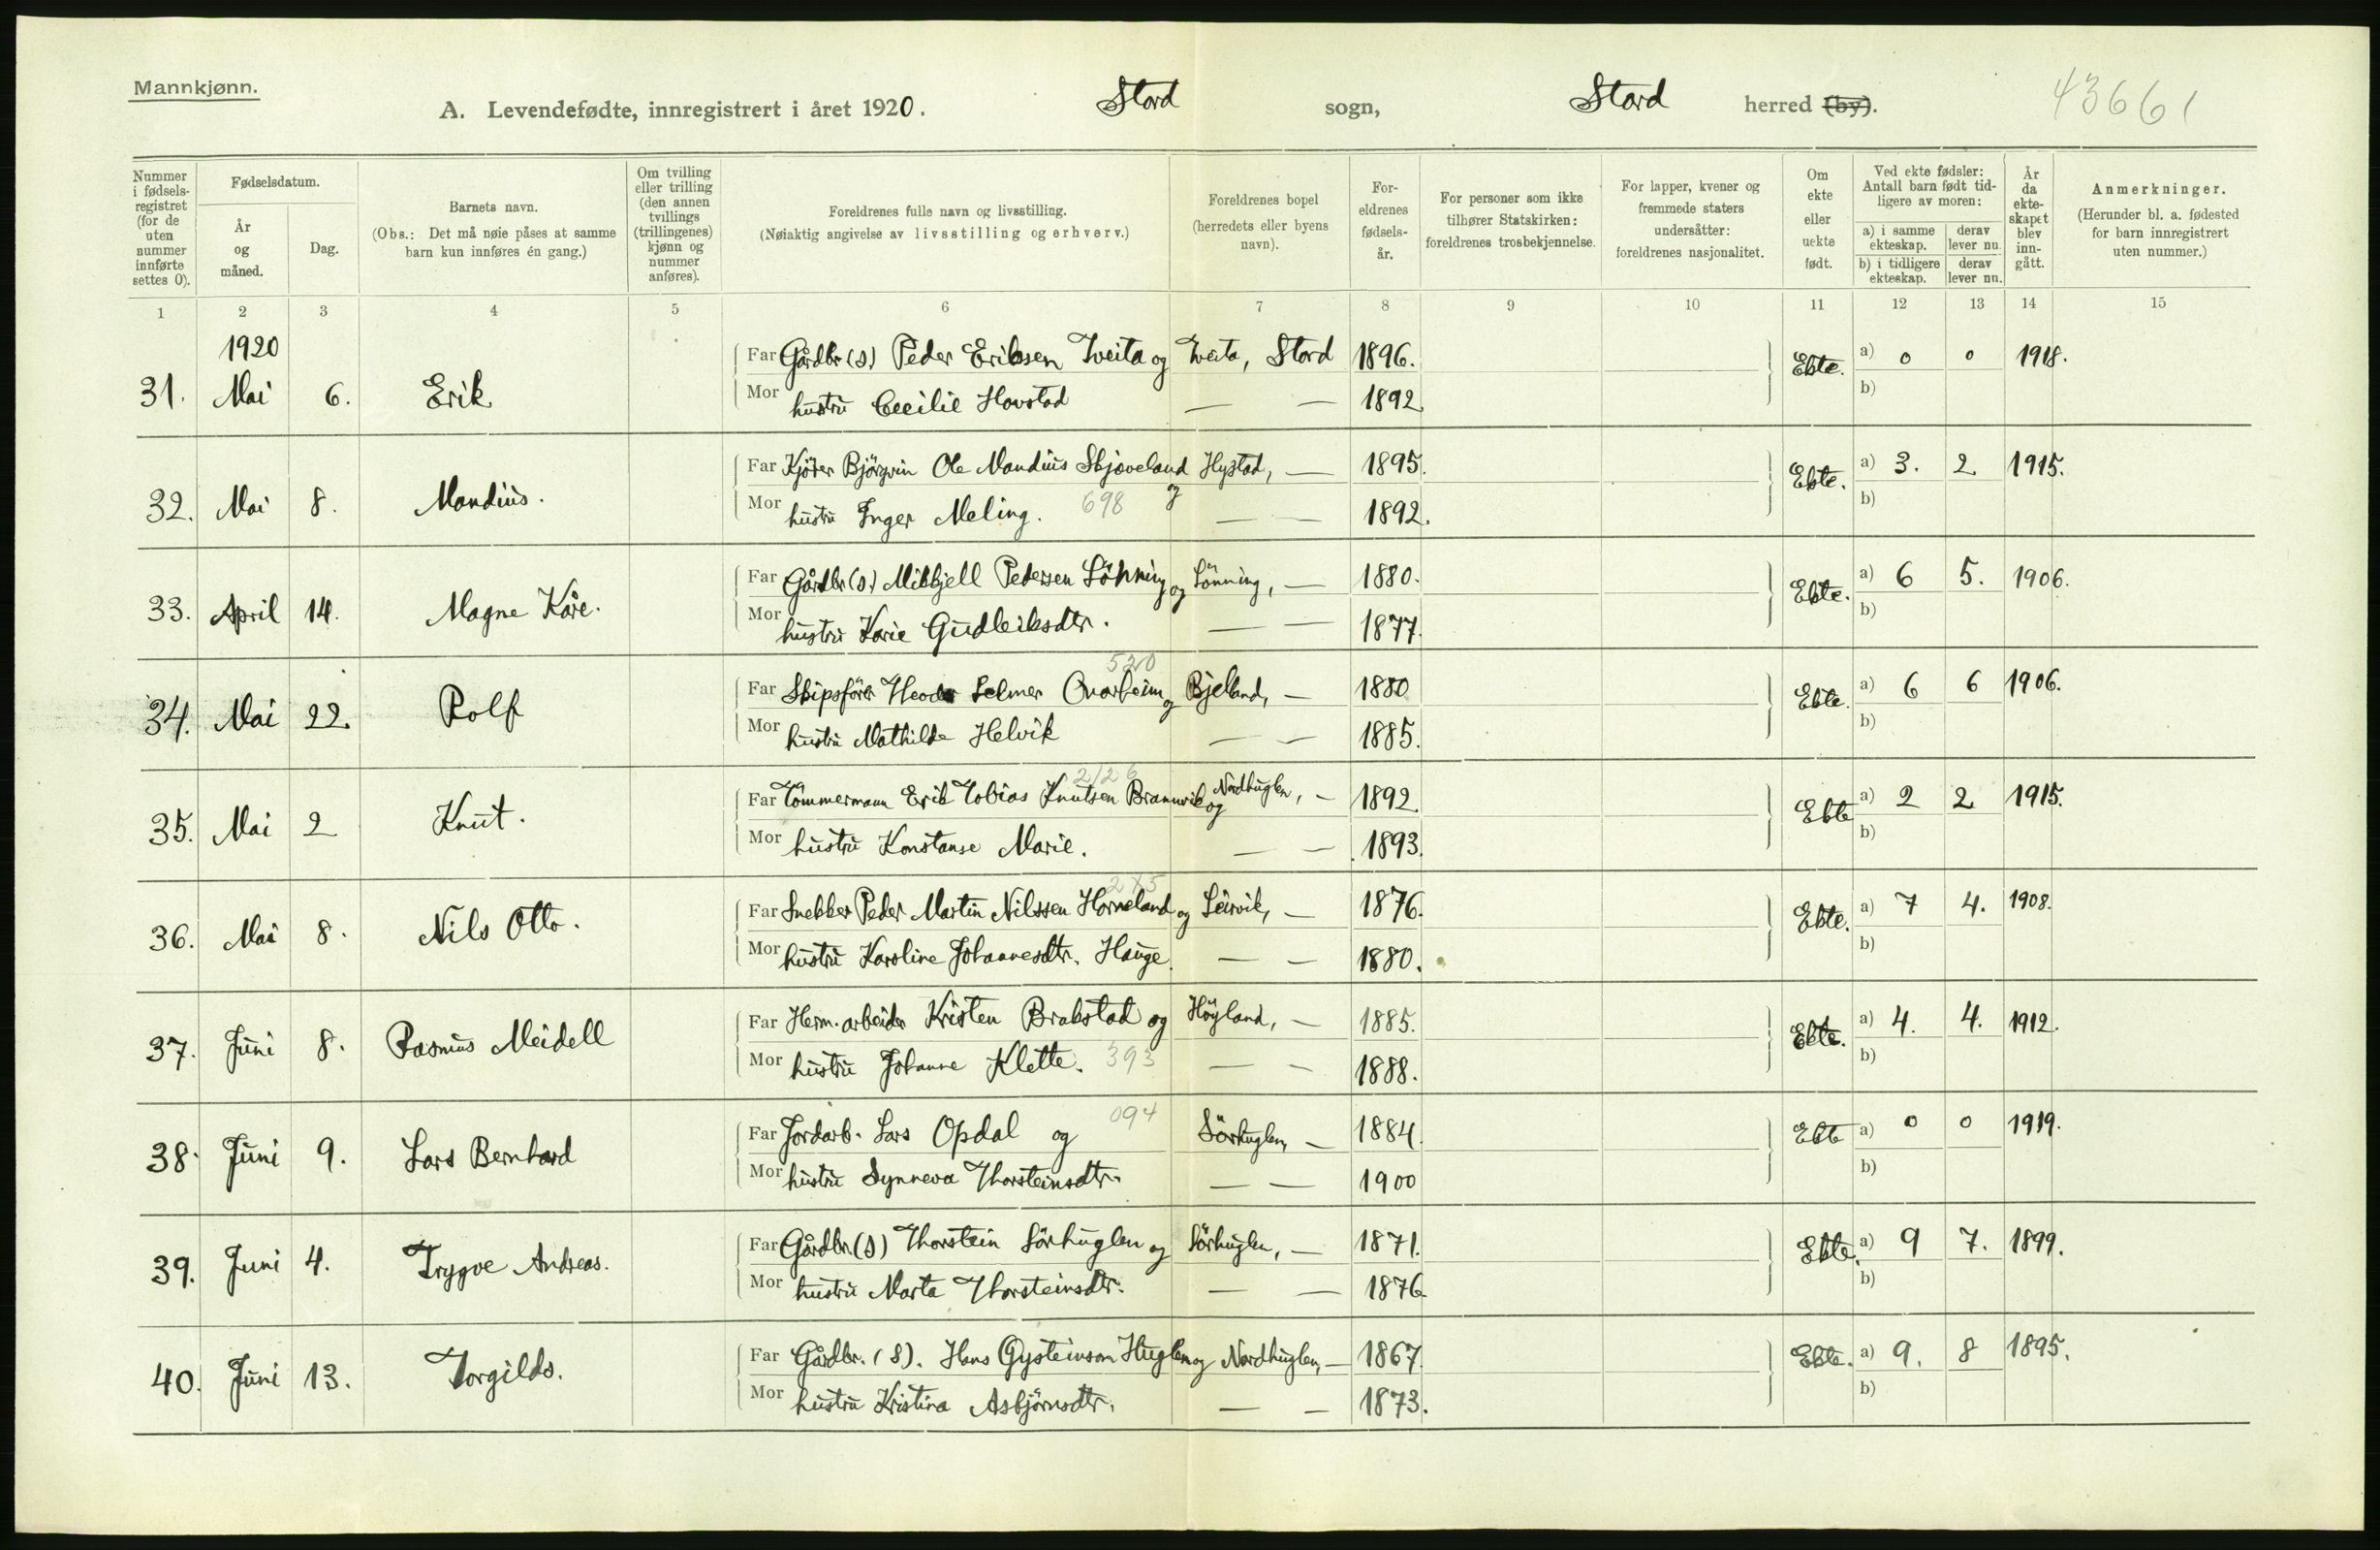 Mannkjønn.
A. Levendefødte, innregistrert i året 1920. Stord sogn, Stord herred (by). 43661
Nummer i fødsels-registret (for de uten nummer innførte settes 0).
Fødselsdatum.
År og måned.
Dag.
Barnets navn.
(Obs.: Det må nøie påses at samme barn kun innføres én gang.)
Om tvilling eller trilling (den annen tvillings (trillingenes) kjønn og nummer anføres).
Foreldrenes fulle navn og livsstilling.
(Nøiaktig angivelse av livsstilling og erhverv.)
Foreldrenes bopel
(herredets eller byens navn).
For-eldrenes fødsels-år.
For personer som ikke tilhører Statskirken: foreldrenes trosbekjennelse.
For lapper, kvener og fremmede staters undersåtter: foreldrenes nasjonalitet.
Om ekte eller uekte født.
Ved ekte fødsler: Antall barn født tid-ligere av moren:
a) i samme ekteskap. derav lever nu.
b) i tidligere ekteskap. derav lever nu.
År da ekte-skapet blev inn-gått.
Anmerkninger.
(Herunder bl. a. fødested for barn innregistrert uten nummer.)
1 2 3 4 5 6 7 8 9 10 11 12 13 14 15
1920
Far Gårdbr (s) Peder Eriksen Tveita og Tveita, Stord 1896. Ekte. a) 0 0 1918.
31. Mai 6. Erik Mor hustru Cecilie Hovstad — — 1892. b)
Far Kjører Bjørgvin Ole Mandius Skjoveland og Hystad, — 1895. Ekte. a) 3. 2. 1915.
32. Mai 8. Mandius. Mor hustru Inger Meling. 698 — — 1892. b)
Far Gårdbr (s.) Mikkjell Pedersen Lönning og Lönning, — 1880. Ekte. a) 6 5. 1906.
33. April 14. Magne Kåre. Mor hustru Karie Gudleiksdtr. — — 1877. b)
520
Far Skipsförer Theodor Selmer Qvarheim og Bjelland, — 1880 Ekte. a) 6 6 1906.
34. Mai 22. Rolf Mor hustru Mathilde Helvik — — 1885. b)
2/26
Far Tömmermann Erik Tobias Knutsen Brannvik og Nordhuglen, — 1892. Ekte a) 2 2 1915.
35. Mai 2 Knut. Mor hustru Konstanse Marie. — — 1893. b)
275
Far Snekker Peder Martin Nilssen Horneland og Leirvik, — 1876. Ekte. a) 7 4. 1908.
36. Mai 8. Nils Otto. Mor hustru Karoline Johannesdtr. Hauge. — — 1880. b)
Far Herm. arbeider Kristen Brakstad og Höyland, — 1885. Ekte. a) 4. 4. 1912.
37. Juni 8. Rasmus Meidell Mor hustru Johanne Klette. 393 — — 1888. b)
Far Jordarb. Lars Opdal og 094 Sörhuglen, — 1884. Ekte a) 0 0 1919.
38. Juni 9. Lars Bernhard Mor hustru Synneva Thorsteinsdtr. — — 1900 b)
Far Gårdbr. (s) Thorstein Sörhuglen og Sörhuglen, — 1871. Ekte. a) 9 7. 1899.
39. Juni 4. Trygve Andreas. Mor hustru Marta Thorsteinsdtr. — — 1876 b)
Far Gårdbr. (s). Hans Gysteinson Huglen og Nordhuglen, — 1867. Ekte. a) 9. 8 1895.
40. Juni 13. Torgilds. Mor hustru Kristina Asbjörnsdtr. — — 1873. b)